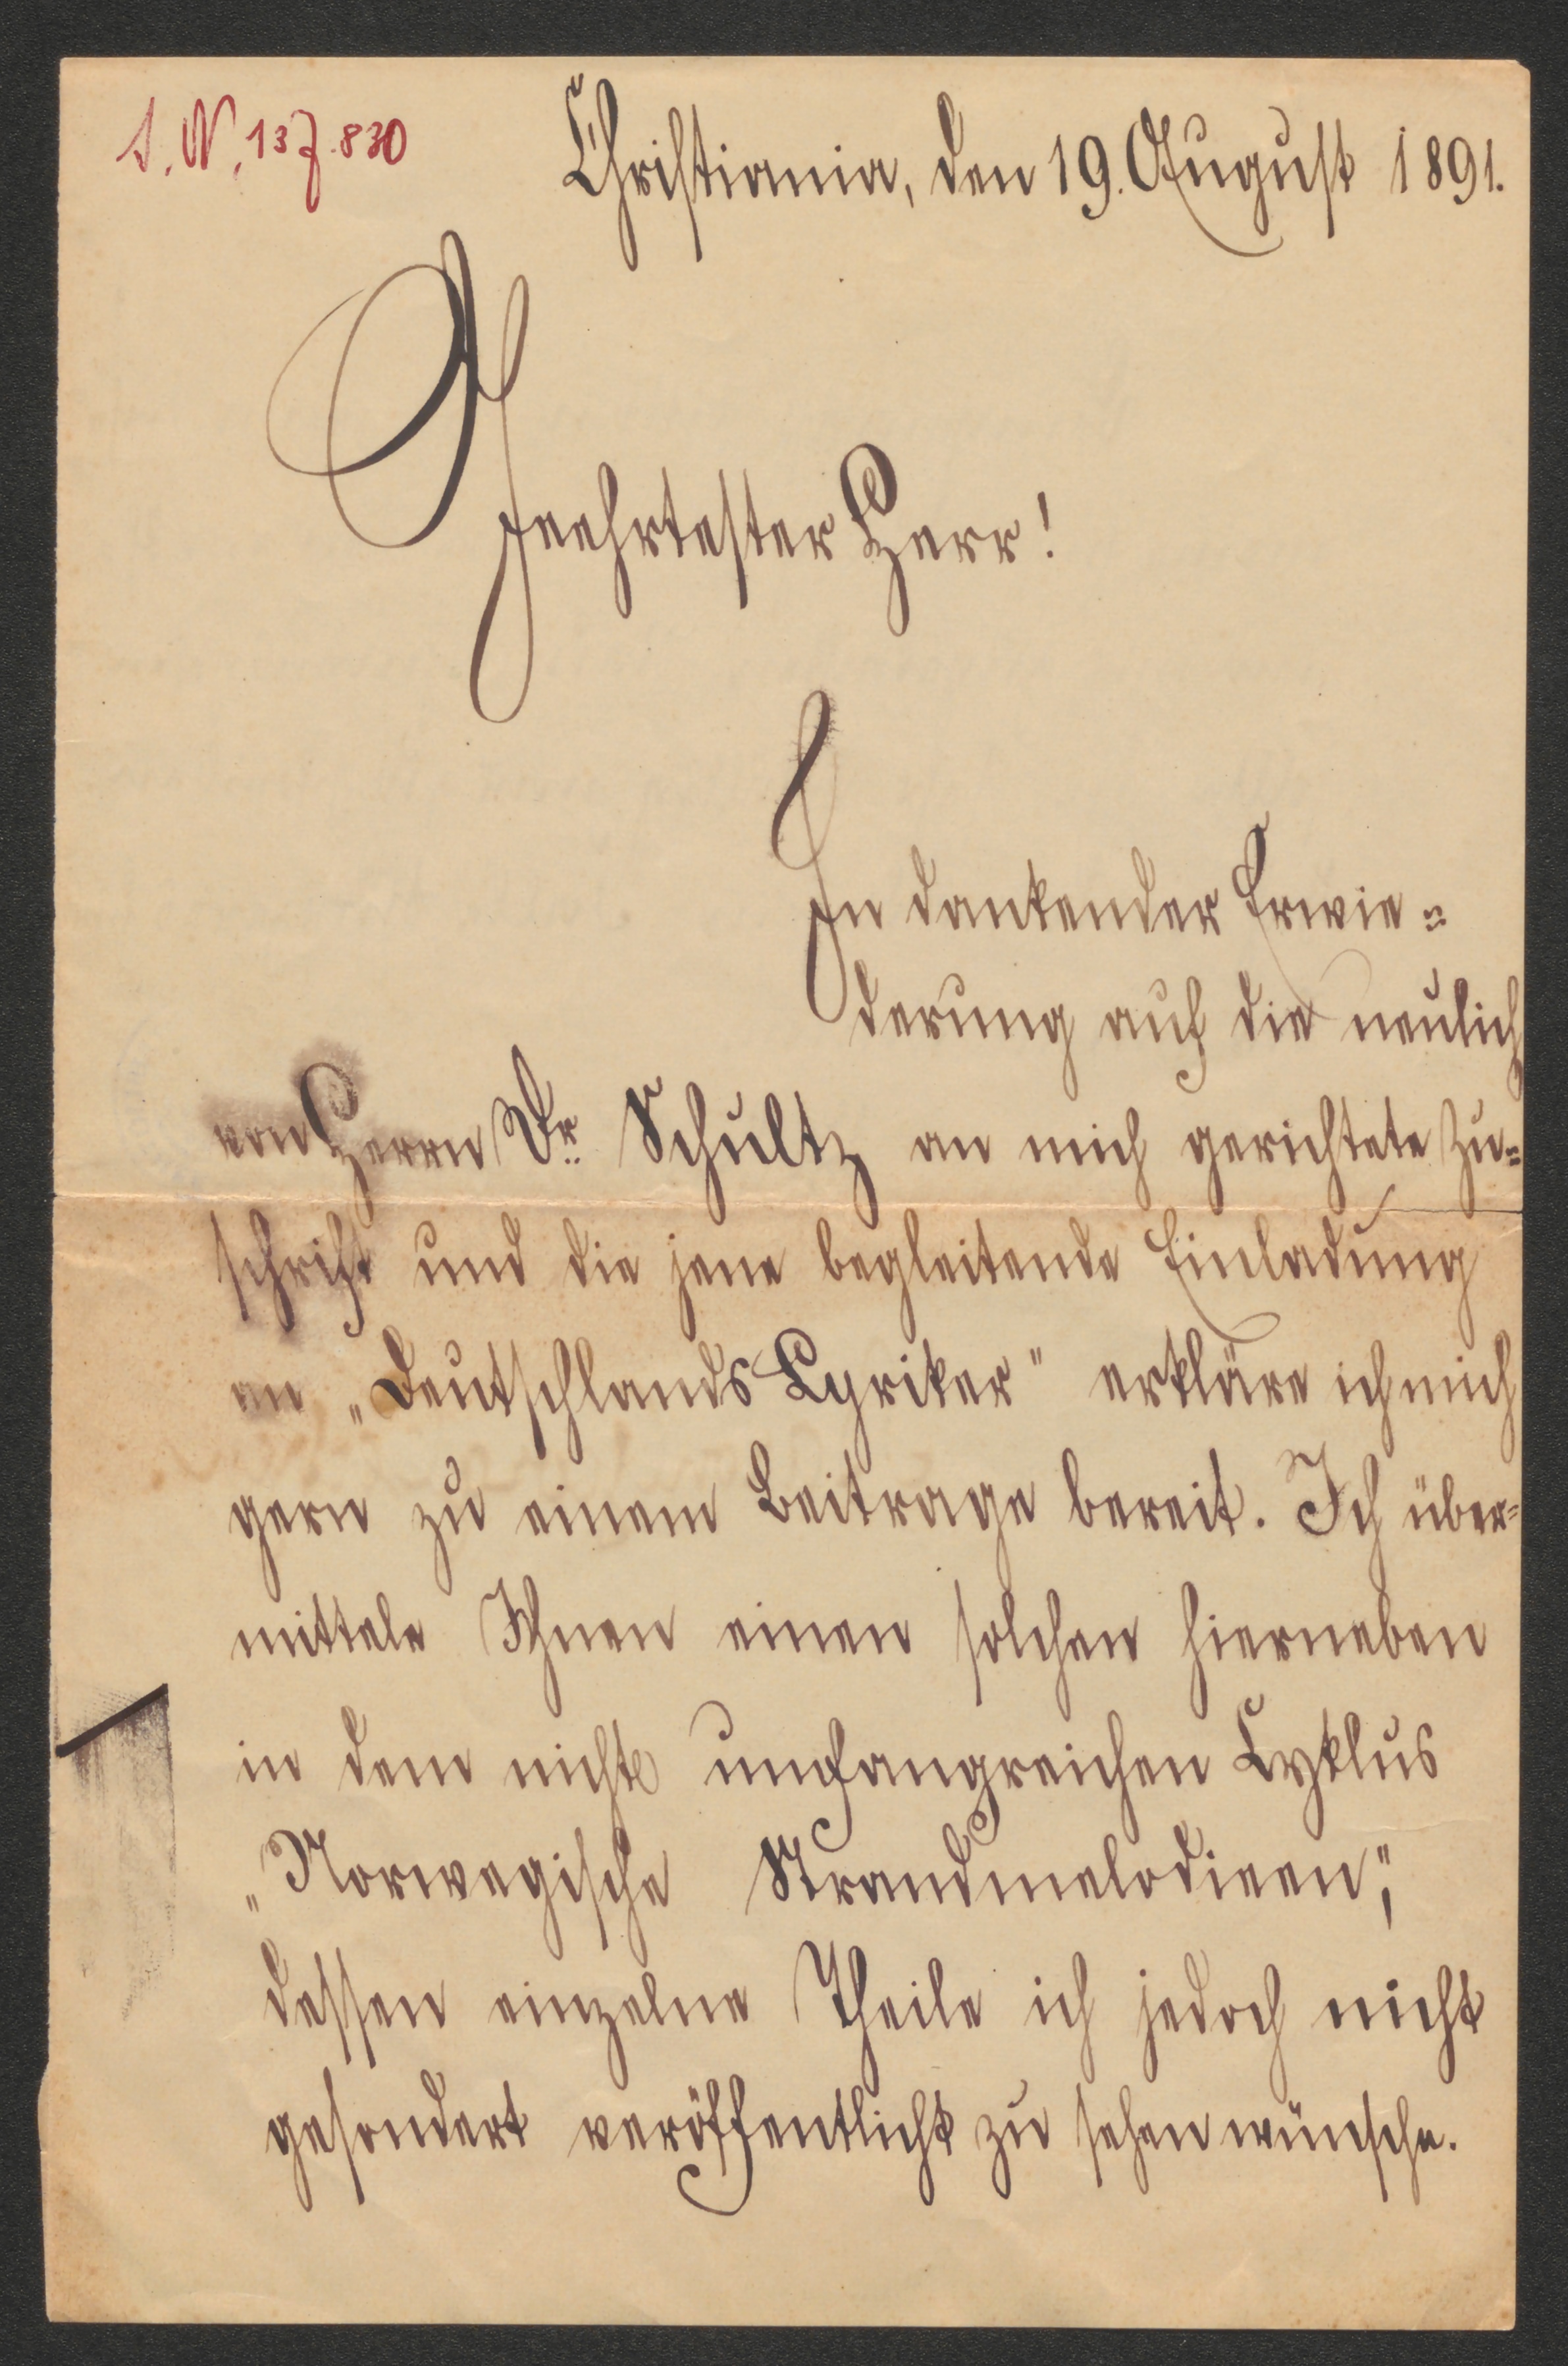 I. N. 137.830
Christiania, den 19. August 1891.
Geehrtester Herr!
In dankender Erwie=
derung auf die neulich
von Herrn Dr. Schultz an mich gerichtete Zu=
schrift und die jene begleitende Einladung
an „Deutschlands Lyriker" erkläre ich mich
gern zu einem Beitrage bereit. Ich über=
mittele Ihnen einen solchen hierneben
in dem nicht umfangreichen Cyklus
„Norwegische Strandmelodieen";
dessen einzelne Theile ich jedoch nicht
gesondert veröffentlicht zu sehen wünsche.